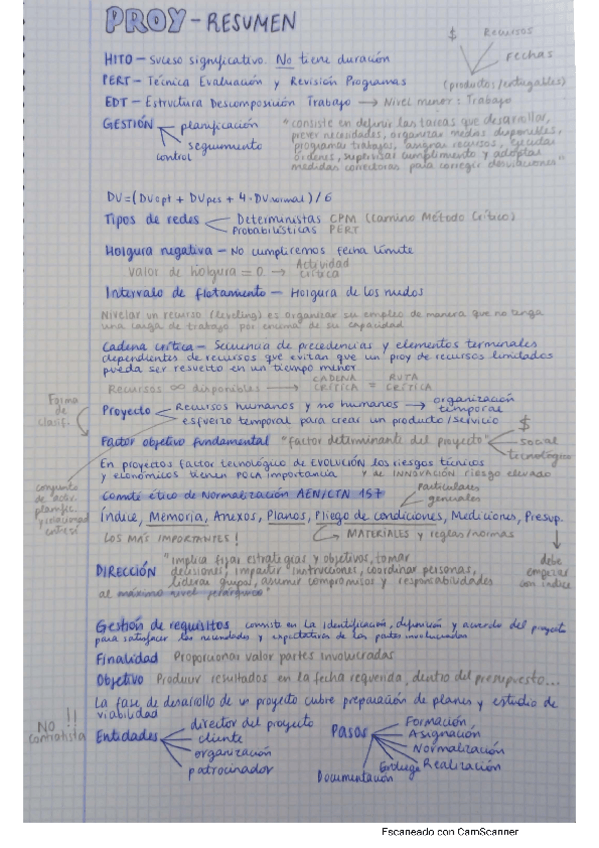 PROY - RESUMEN
$ Recursos
Fechas
(productos/entregables)
HITO - Suceso significativo. No tiene duración
PERT - Técnica Evaluación y Revisión Programas
EDT - Estructura Descomposición Trabajo → Nivel menor: Trabajo
GESTIÓN planificación
seguimiento
control
"consiste en definir las tareas que desarrollar,
prever necesidades, organizar medios disponibles,
programar trabajos, asignar recursos, ejecutar
órdenes, supervisar cumplimiento y adoptar
medidas correctoras para corregir desviaciones"
DV=(DVopt + DVpes + 4·DVnormal)/6
Tipos de redes Deterministas CPM (Camino Método Crítico)
Probabilísticas PERT
Holgura negativa - No cumpliremos fecha límite
Valor de holgura = 0 → Actividad crítica
Intervalo de flotamiento - Holgura de los nudos
Nivelar un recurso (leveling) es organizar su empleo de manera que no tenga
una carga de trabajo por encima de su capacidad
Cadena crítica - Secuencia de precedencias y elementos terminales
dependientes de recursos que evitan que un proy de recursos limitados
pueda ser resuelto en un tiempo menor
Recursos ∞ disponibles → CADENA CRÍTICA = RUTA CRÍTICA
Forma
de
clasif.
Proyecto Recursos humanos y no humanos → organización temporal
esfuerzo temporal para crear un producto/servicio
Factor objetivo fundamental "factor determinante del proyecto" $
social
tecnológico
conjunto
de activ.
planific.
y relacionad
entre sí
En proyectos factor tecnológico de EVOLUCIÓN los riesgos técnicos
y económicos tienen POCA importancia y de INNOVACIÓN riesgo elevado
Comité ético de Normalización AEN/CTN 157
particulares
generales
Índice, Memoria, Anexos, Planos, Pliego de condiciones, Mediciones, Presup.
LOS MÁS IMPORTANTES!
MATERIALES y reglas/normas
debe
empezar
con índice
DIRECCIÓN "implica fijar estrategias y objetivos, tomar
decisiones, impartir instrucciones, coordinar personas,
liderar grupos, asumir compromisos y responsabilidades
al máximo nivel jerárquico"
Gestión de requisitos consiste en la identificación, definición y acuerdo del proyecto
para satisfacer las necesidades y expectativas de las partes involucradas
Finalidad Proporcionar valor partes involucradas
Objetivo Producir resultados en la fecha requerida, dentro del presupuesto...
La fase de desarrollo de un proyecto cubre preparación de planes y estudio de
viabilidad
NO !!
contratista
Entidades director del proyecto
cliente
organización
patrocinador
Pasos Formación
Asignación
Normalización
Realización
Entrega
Documentación
Escaneado con CamScanner